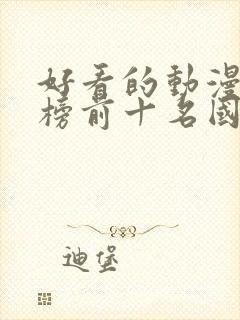 好看的動漫
榜前十名國
迪堡